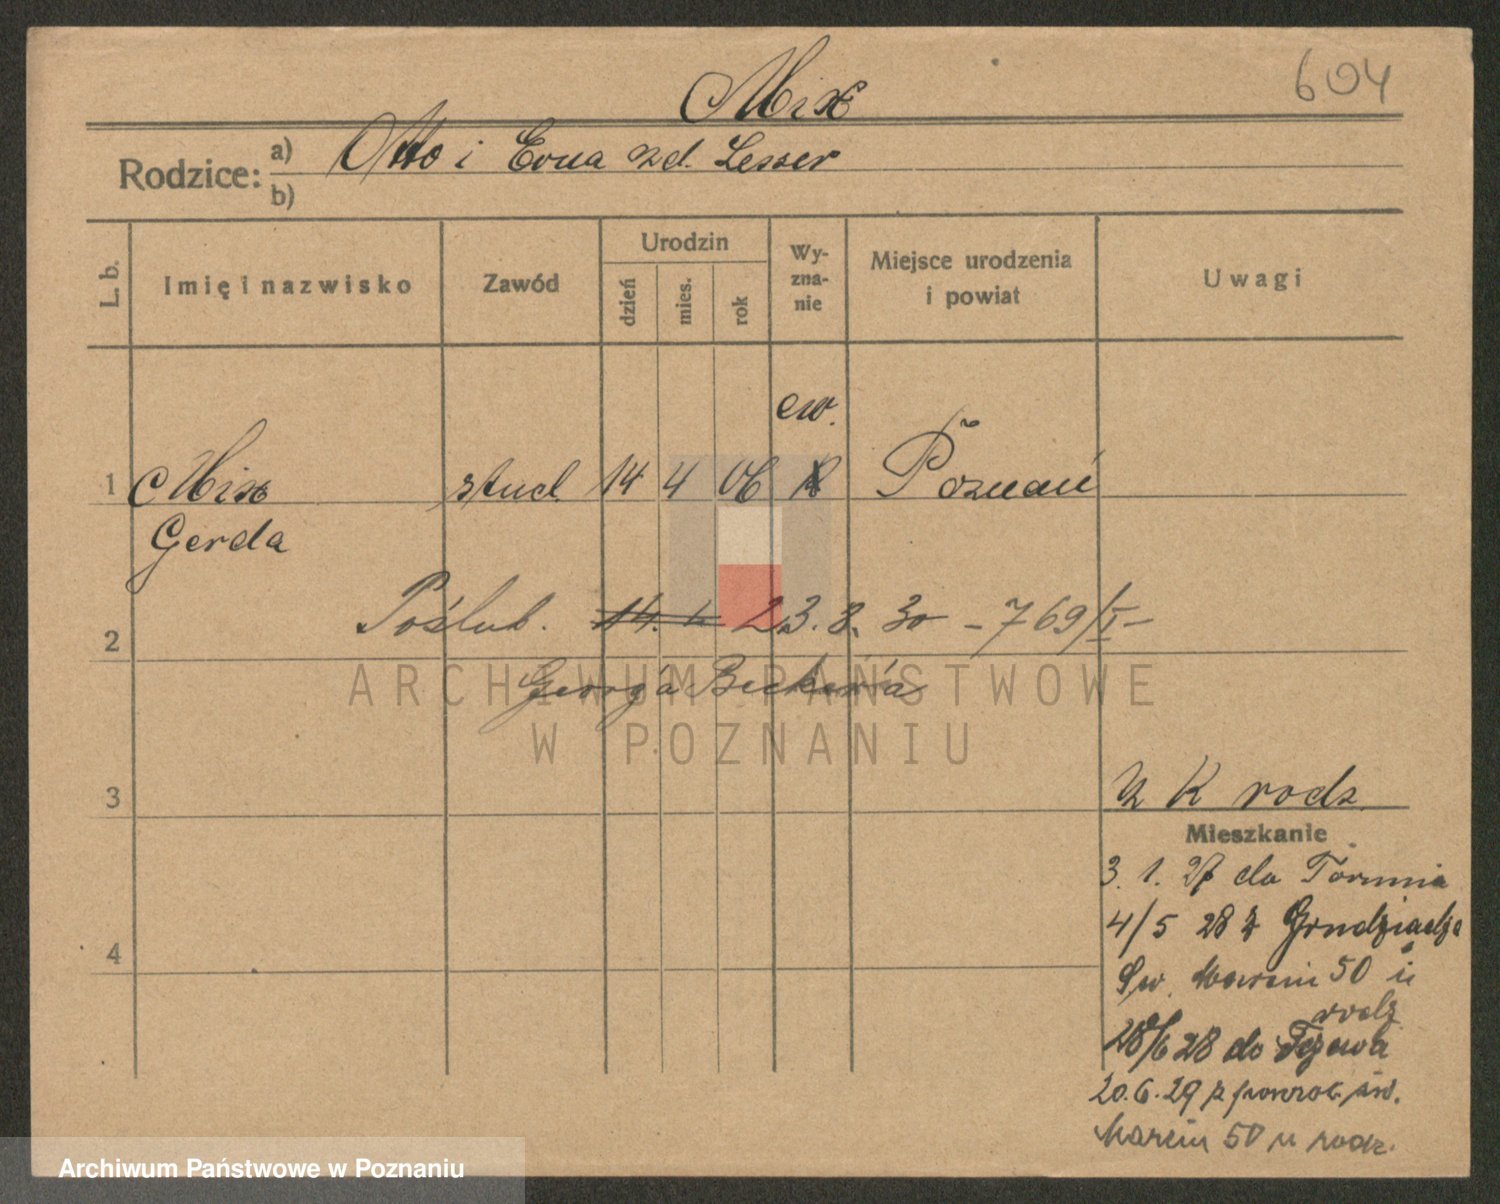 604
Mix
Rodzice: a) Otto i Erna zd. Lesser
b)
L. b. Imię i nazwisko Zawód Urodzin dzień mies. rok Wy-zna-nie Miejsce urodzenia i powiat Uwagi
ew.
1 Mix stud. 14 4 06 Poznań
Gerda
2 Poślub. 14. 23. 8. 30 - 769/I -
Georg'a Becker'a
3 K rodz.
Mieszkanie
3. 1. 27 do Torunia
4/5 28 z Grudziądza
4 Św. Marcin 50 u
rodz.
28/6 28 do Tczewa
20. 6. 29 z powrot. św.
Marcin 50 u rodz.
ARCHIWUM PAŃSTWOWE
W POZNANIU
Archiwum Państwowe w Poznaniu